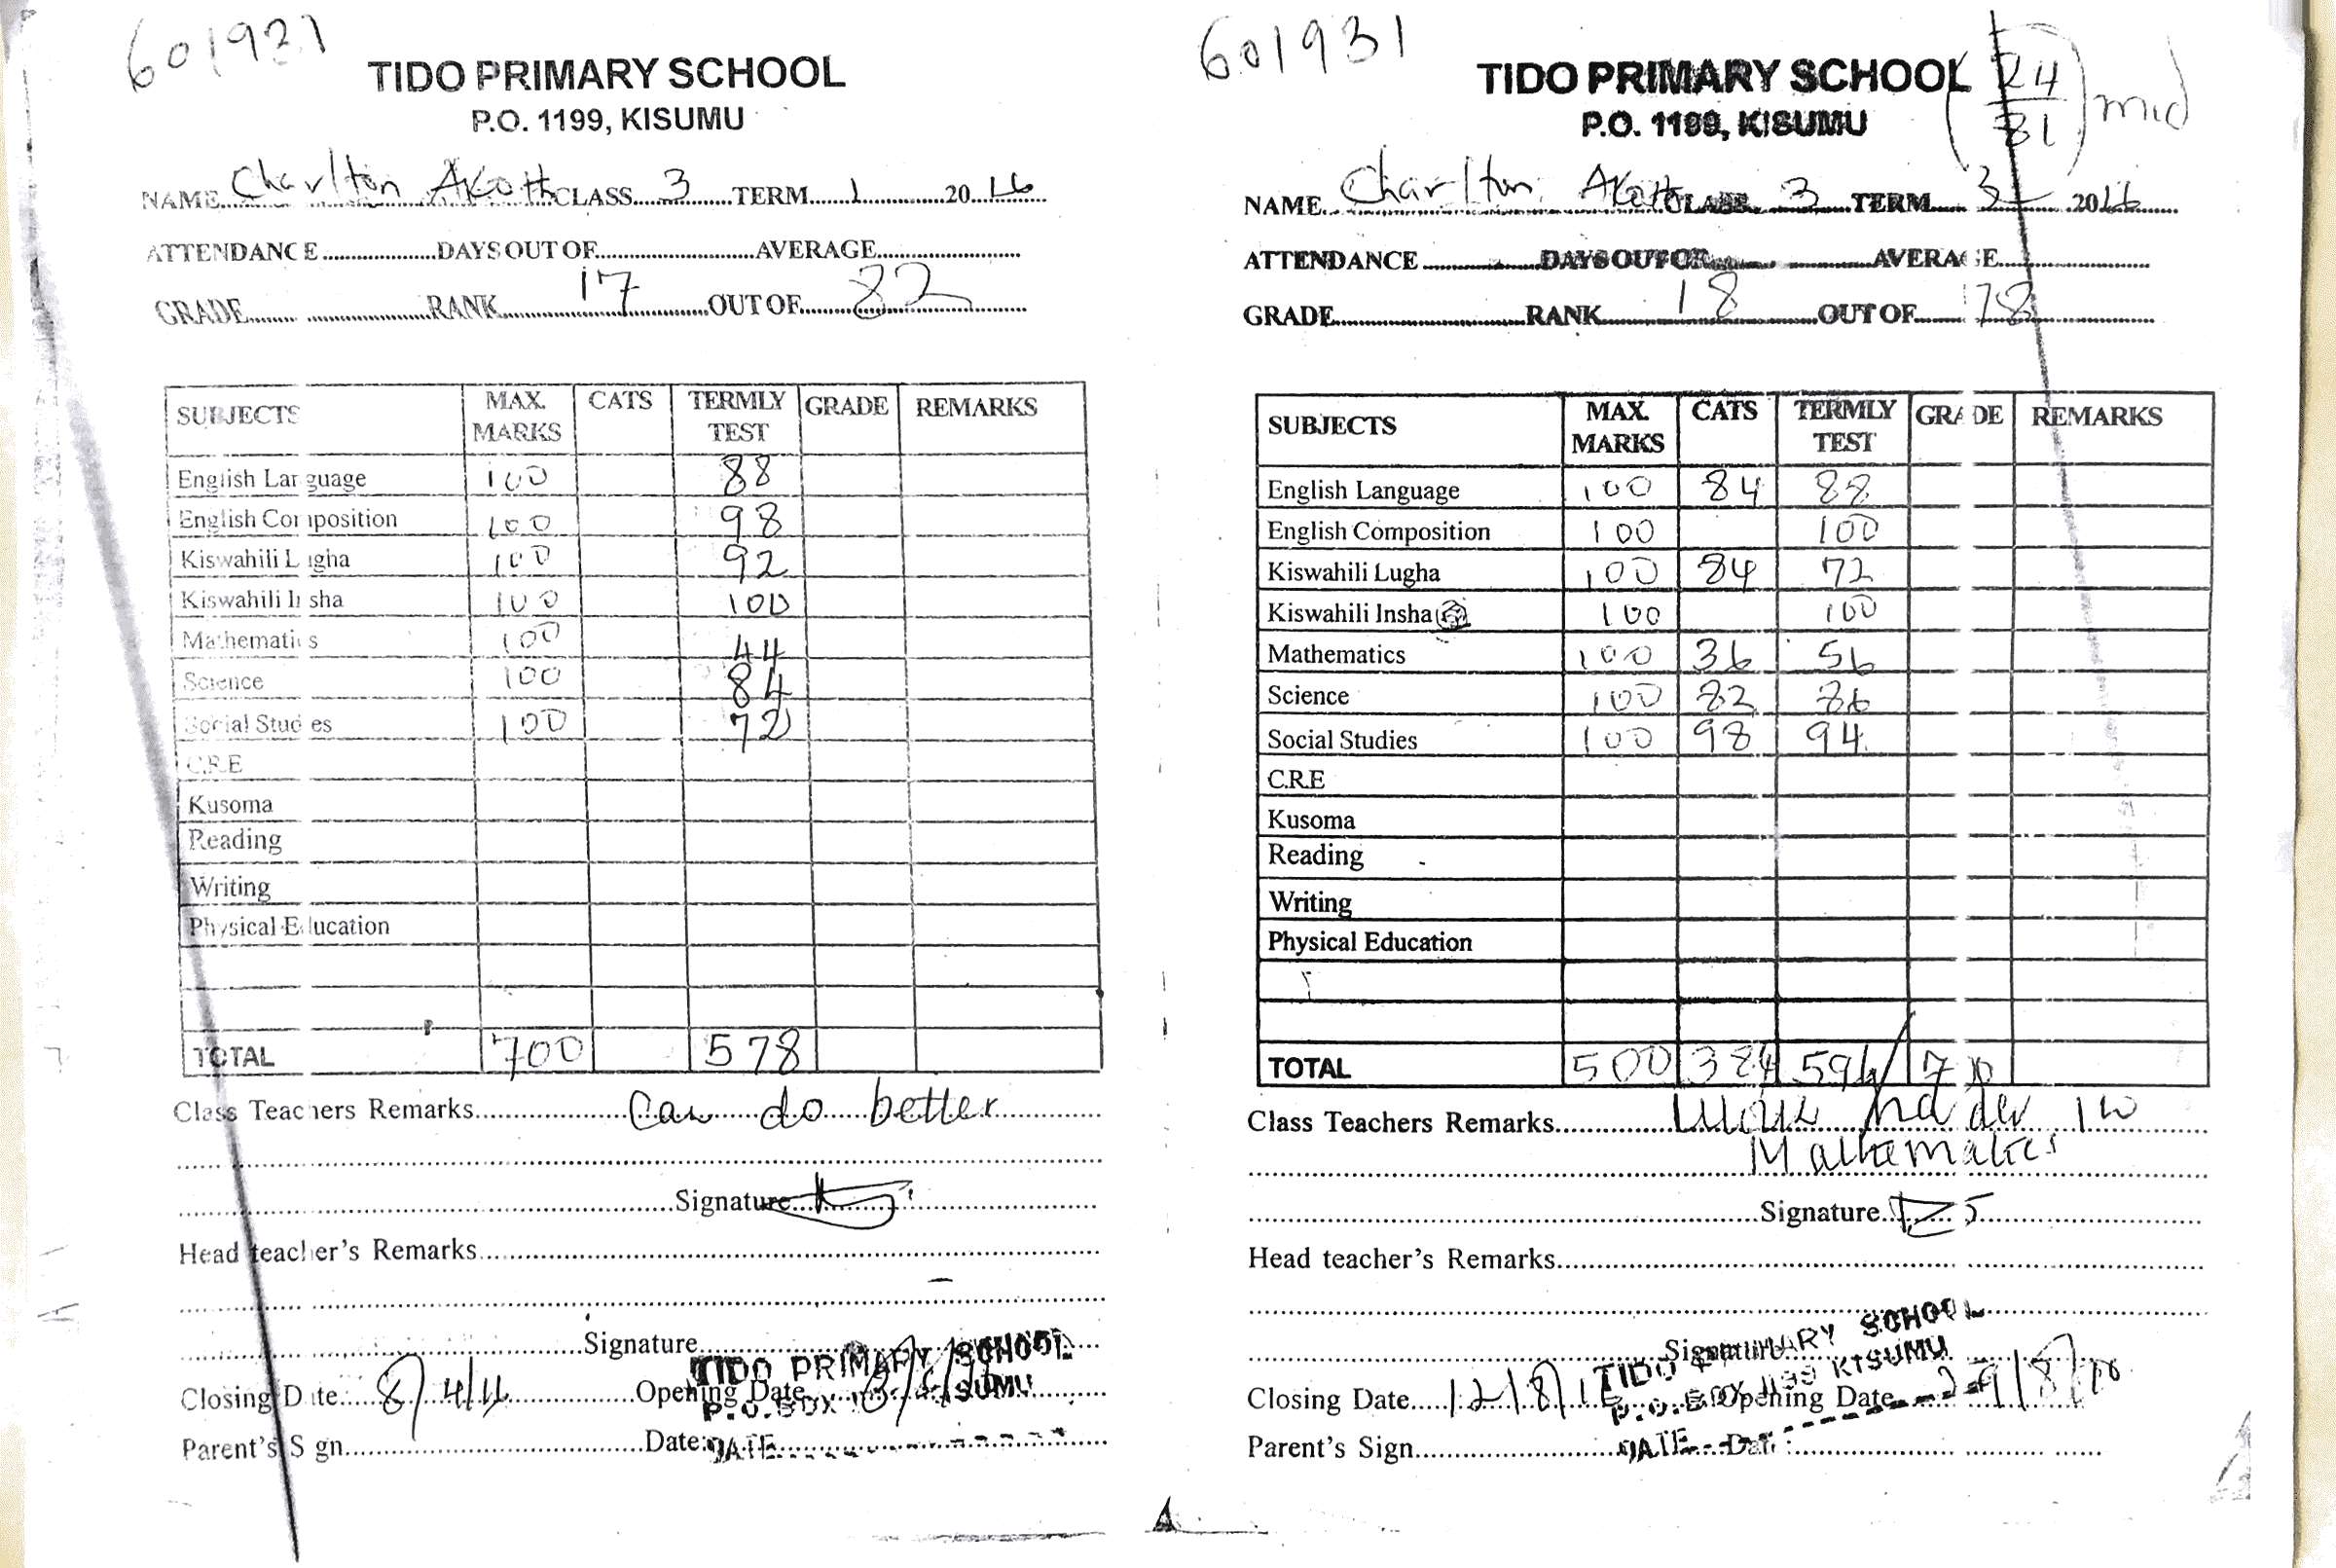 601931
TIDO PRIMARY SCHOOL
P.O. 1199, KISUMU
NAME Charlton Akoth CLASS 3 TERM 1 2016
ATTENDANCE DAYS OUT OF AVERAGE
GRADE RANK 17 OUT OF 82
SUBJECTS MAX. MARKS CATS TERMLY TEST GRADE REMARKS
English Language 100 88
English Composition 100 98
Kiswahili Lugha 100 92
Kiswahili Insha 100 100
Mathematics 100 44
Science 100 84
Social Studies 100 72
C.R.E
Kusoma
Reading
Writing
Physical Education
TOTAL 700 578
Class Teachers Remarks Can do better
Signature
Head teacher's Remarks
Signature
TIDO PRIMARY SCHOOL
Closing Date 8/4/16 Opening Date
P.O. BOX KISUMU
Parent's Sign Date:
DATE
601931
TIDO PRIMARY SCHOOL
P.O. 1199, KISUMU
24/81 mid
NAME Charlton Akoth CLASS 3 TERM 2016
ATTENDANCE DAYS OUT OF AVERAGE
GRADE RANK 18 OUT OF 78
SUBJECTS MAX. MARKS CATS TERMLY TEST GRADE REMARKS
English Language 100 84 88
English Composition 100 100
Kiswahili Lugha 100 84 72
Kiswahili Insha 100 100
Mathematics 100 36 56
Science 100 82 86
Social Studies 100 98 94
C.R.E
Kusoma
Reading
Writing
Physical Education
TOTAL 500 384 596/700
Class Teachers Remarks Work harder in
Mathematics
Signature
Head teacher's Remarks
Signature
TIDO PRIMARY SCHOOL
P.O. BOX 1199 KISUMU
Closing Date 12/8/16 Opening Date 29/8/16
Parent's Sign Date:
DATE